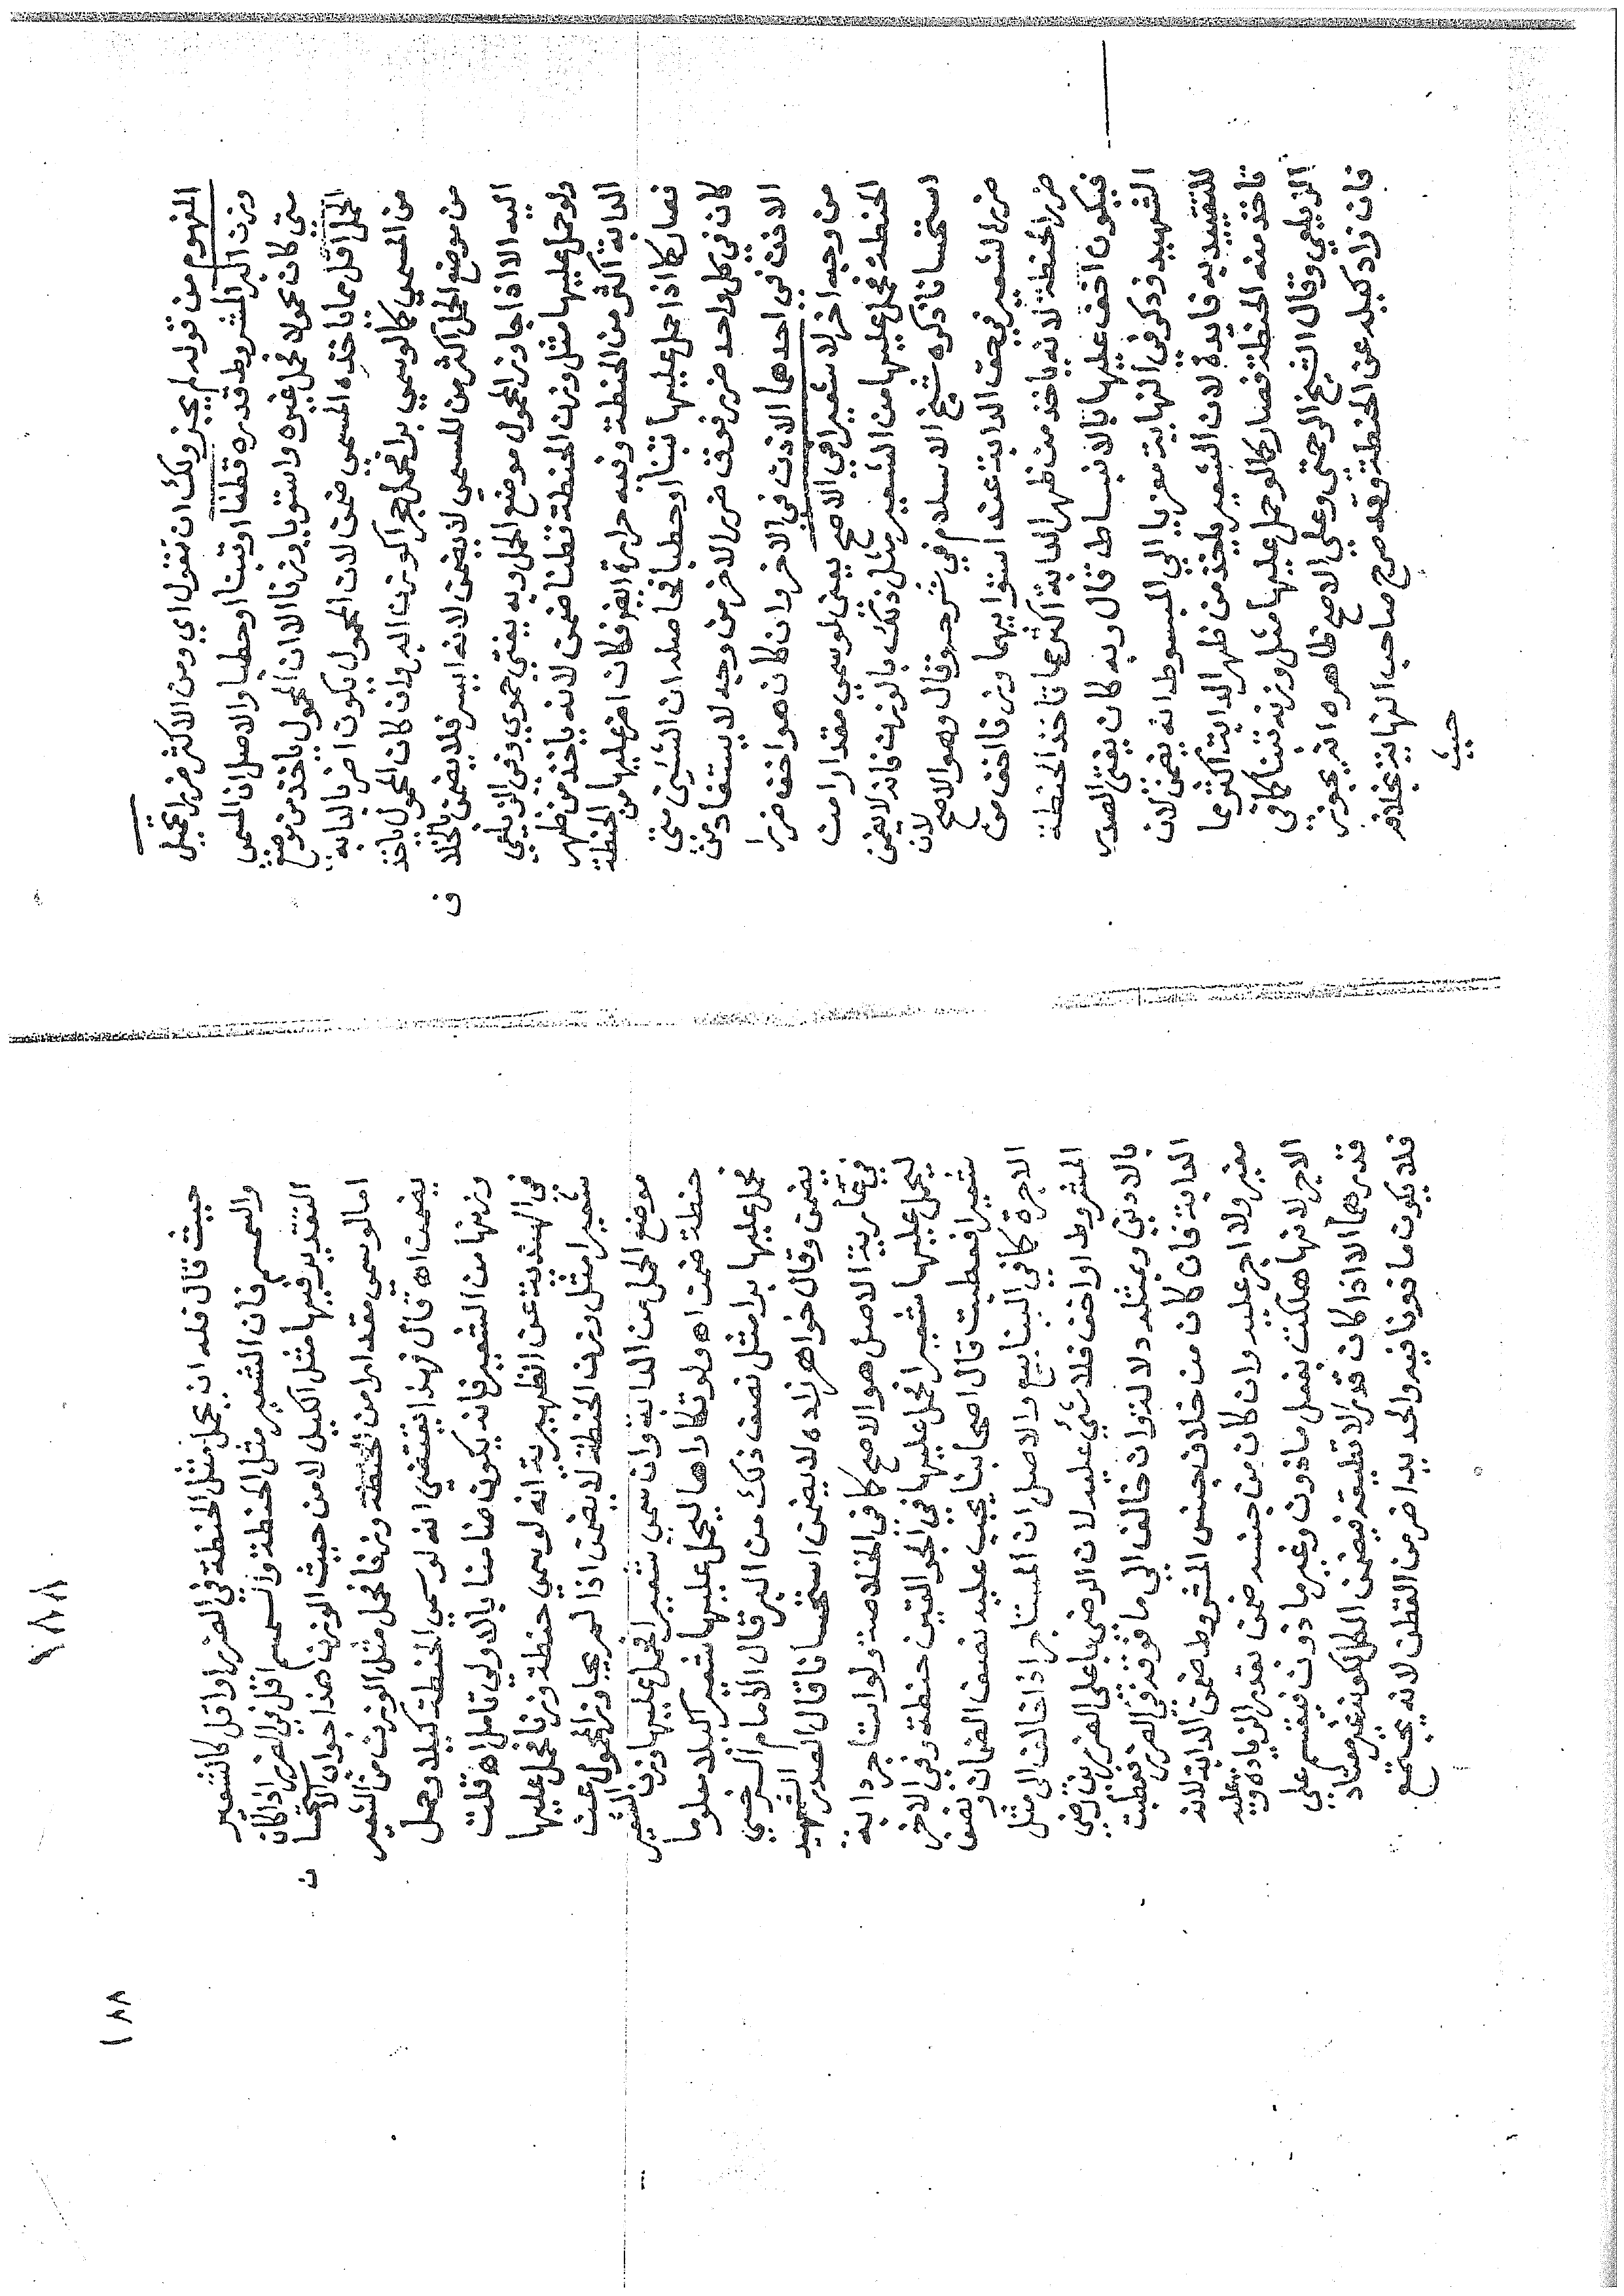 المفهوم من قوله لم يجز ولك ان تقول اي ومن الاكثر ضررا تحميل
وزن البر المشروط قدره قطنا او تبنا او حطبا والاصل ان المسمى
متى كان محمولا فحمل غيره واستويا وزنا الا ان المحمول ياخذ من موضع
الحمل اقل مما ياخذه المسمى ضمن لان المحمول يكون اضر بالدابة
من المسمى كما لو سمى برا فحمل حجرا كوزن البر وان كان المحمول ياخذ
من موضع الحمل اكثر من المسمى لا يضمن لانه ايسر فلا يضمن بالخلا
ف
اليه الا اذا جاوز المحمول موضع الحمل وبه يفتى حموي وفي الزيلعي
ولو حمل عليها مثل وزن الحنطة قطنا ضمن لانه ياخذ من ظهر
الدابة اكثر من الحنطة وفيه حرارة ايضا فكان اضر عليها من الحنطة
فصار كما اذا حمل عليها تبنا او حطبا فحاصله ان الشيئين متى
كان في كل واحد ضرر فوق ضرر الاخر من وجه لا يستفاد من
الاذن في احدهما الاذن في الاخر وان كان هو اخف ضررا
من وجه اخر لا شعيرا في الاصح يعني لو سمى مقدارا من
الحنطة فحمل عليها من الشعير مثل ذلك بالوزن فانه لا يضمن
استحسانا ذكره شيخ الاسلام في شرحه وقال وهو الاصح لان
ضرر الشعير في حق الدابة عند استوائهما وزنا اخف من
ضرر الحنطة لانه ياخذ من ظهر الدابة اكثر مما تاخذ الحنطة
فيكون اخف عليها بالانبساط قال وبه كان يفتى الصدر
الشهيد وذكر في النهاية معزيا الى المبسوط انه يضمن لان
للتقييد به فايدة لان الشعير ياخذ من ظهر الدابة اكثر مما
تاخذ منه الحنطة فصار كما لو حمل عليها مثل وزنه تبنا كما في
الزيلعي وقال الشيخ الرحمتي وعلى الاصح ظاهره انه يجوز
فان زاد كيله عن الحنطة وقد صرح صاحب النهاية بخلافه
حيث
١٨٨
حيث قال فله ان يحمل مثل الحنطة في الضرر او اقل كالشعير
والسمسم فان الشعير مثل الحنطة والسمسم اقل في الضرر اذا كان
التقدير فيها مثل الكيل لا من حيث الوزن هذا جواب الاستحسا
ن
اما لو سمى مقدارا من الحنطة وزنا فحمل مثل الوزن من الشعير
يضمن اه قال فهذا يقتضي انه لو سمى الحنطة كيلا وحمل
وزنها من الشعير فانه يكون ضامنا بالاولى تامل اه قلت
في الهندية عن الظهيرية انه لو سمى حنطة وزنا فحمل عليها
شعيرا مثل وزن الحنطة لا يضمن اذا لم يجاوز المحمول عن
موضع الحمل من الدابة وان سمى شعيرا فحمل عليها وزن الشعير
حنطة ضمن اه ولو تكاراها ليحمل عليها شعير كيلا معلوما
فحمل عليها برا مثل نصف ذلك من البر قال الامام السرخسي
يضمن وقال خواهر زاده لا يضمن استحسانا قال الصدر الشهيد
في عارية الاصل هو الاصح كما في الخلاصة ولو استاجر دابة
ليحمل عليها شعيرا فحمل عليها في الجوالقين حنطة وفي الاخر
شعيرا فعطبت قال اصحابنا يجب عليه نصف الضمان ونصف
الاجرة كما في الينابيع والاصل ان المستاجر اذا خالف الى مثل
المشروط او اخف فلا شيء عليه لان الرضى باعلى الضررين رضى
بالادنى وبمثله دلالة وان خالف الى ما فوقه في الضرر فعطبت
الدابة فان كان من خلاف جنس المشروط ضمن الدابة لانه
مغير ولا اجر عليه وان كان من جنسه ضمن بقدر الزيادة وعليه
الاجر لانها هلكت بفعل ماذون وغير ماذون فيقسم على
قدرهما الا اذا كان قدرا لا تطيقه فيضمن الكل لكونه غير معتاد
فلا يكون ماذونا فيه والحديد اضر من القطن لانه يجتمع
١٨٨